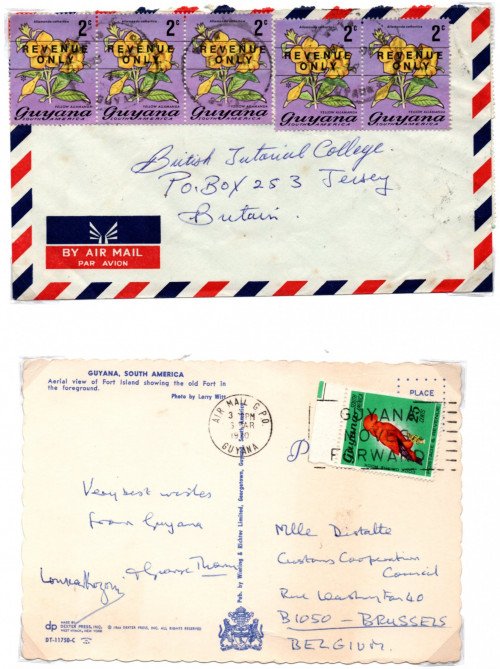 Allamanda cathartica
2c
REVENUE
ONLY
YELLOW ALLAMANDA
Guyana
SOUTH AMERICA
Allamanda cathartica
2c
REVENUE
ONLY
YELLOW ALLAMANDA
Guyana
SOUTH AMERICA
Allamanda cathartica
2c
REVENUE
ONLY
YELLOW ALLAMANDA
Guyana
SOUTH AMERICA
Allamanda cathartica
2c
REVENUE
ONLY
YELLOW ALLAMANDA
Guyana
SOUTH AMERICA
Allamanda cathartica
2c
REVENUE
ONLY
YELLOW ALLAMANDA
Guyana
SOUTH AMERICA
British Tutorial College.
P.O. BOX 253 Jersey
Britain.
BY AIR MAIL
PAR AVION
GUYANA, SOUTH AMERICA
Aerial view of Fort Island showing the old Fort in
the foreground.
Photo by Larry Witt
PLACE
AIR MAIL G.P.O.
GUYANA
GUYANA
FORWARD
Guyana
25
Very best wishes
from Guyana
Pub. by Wieting & Richter Limited, Georgetown, Guyana, South America
Mlle Distalte
Customs Cooperation
Council
Rue Washington 40
B1050 - BRUSSELS
BELGIUM.
dp
MADE BY
DEXTER PRESS, INC.
WEST NYACK, NEW YORK
DEXTER PRESS, INC. ALL RIGHTS RESERVED
DT-11750-C